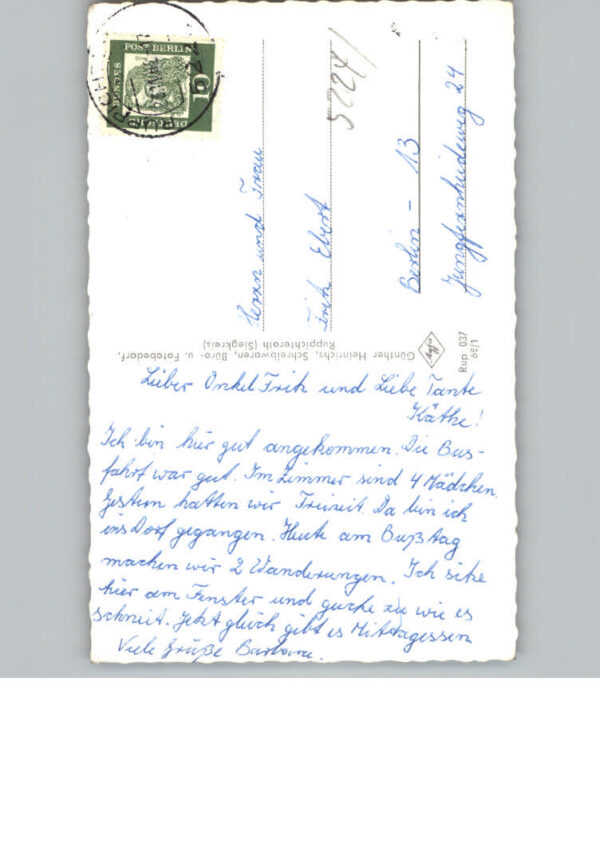 DEUTSCHE
BUNDES
POST BERLIN
10
5224/
Herrn und Frau
Fritz Ebert
Berlin - 13
Jungfernheideweg 24
Günther Heinrichs, Schreibwaren, Büro- u. Fotobedarf,
Ruppichteroth (Siegkreis)
Agfa
Rup. 037
62/1
Lieber Onkel Fritz und Liebe Tante
Käthe!
Ich bin hier gut angekommen. Die Bus-
fahrt war gut. Im Zimmer sind 4 Mädchen.
Gestern hatten wir Freizeit. Da bin ich
ins Dorf gegangen. Heute am Bußtag
machen wir 2 Wanderungen. Ich sitze
hier am Fenster und gucke zu wie es
schneit. Jetzt gleich gibt es Mittagessen
Viele Grüße Barbara.